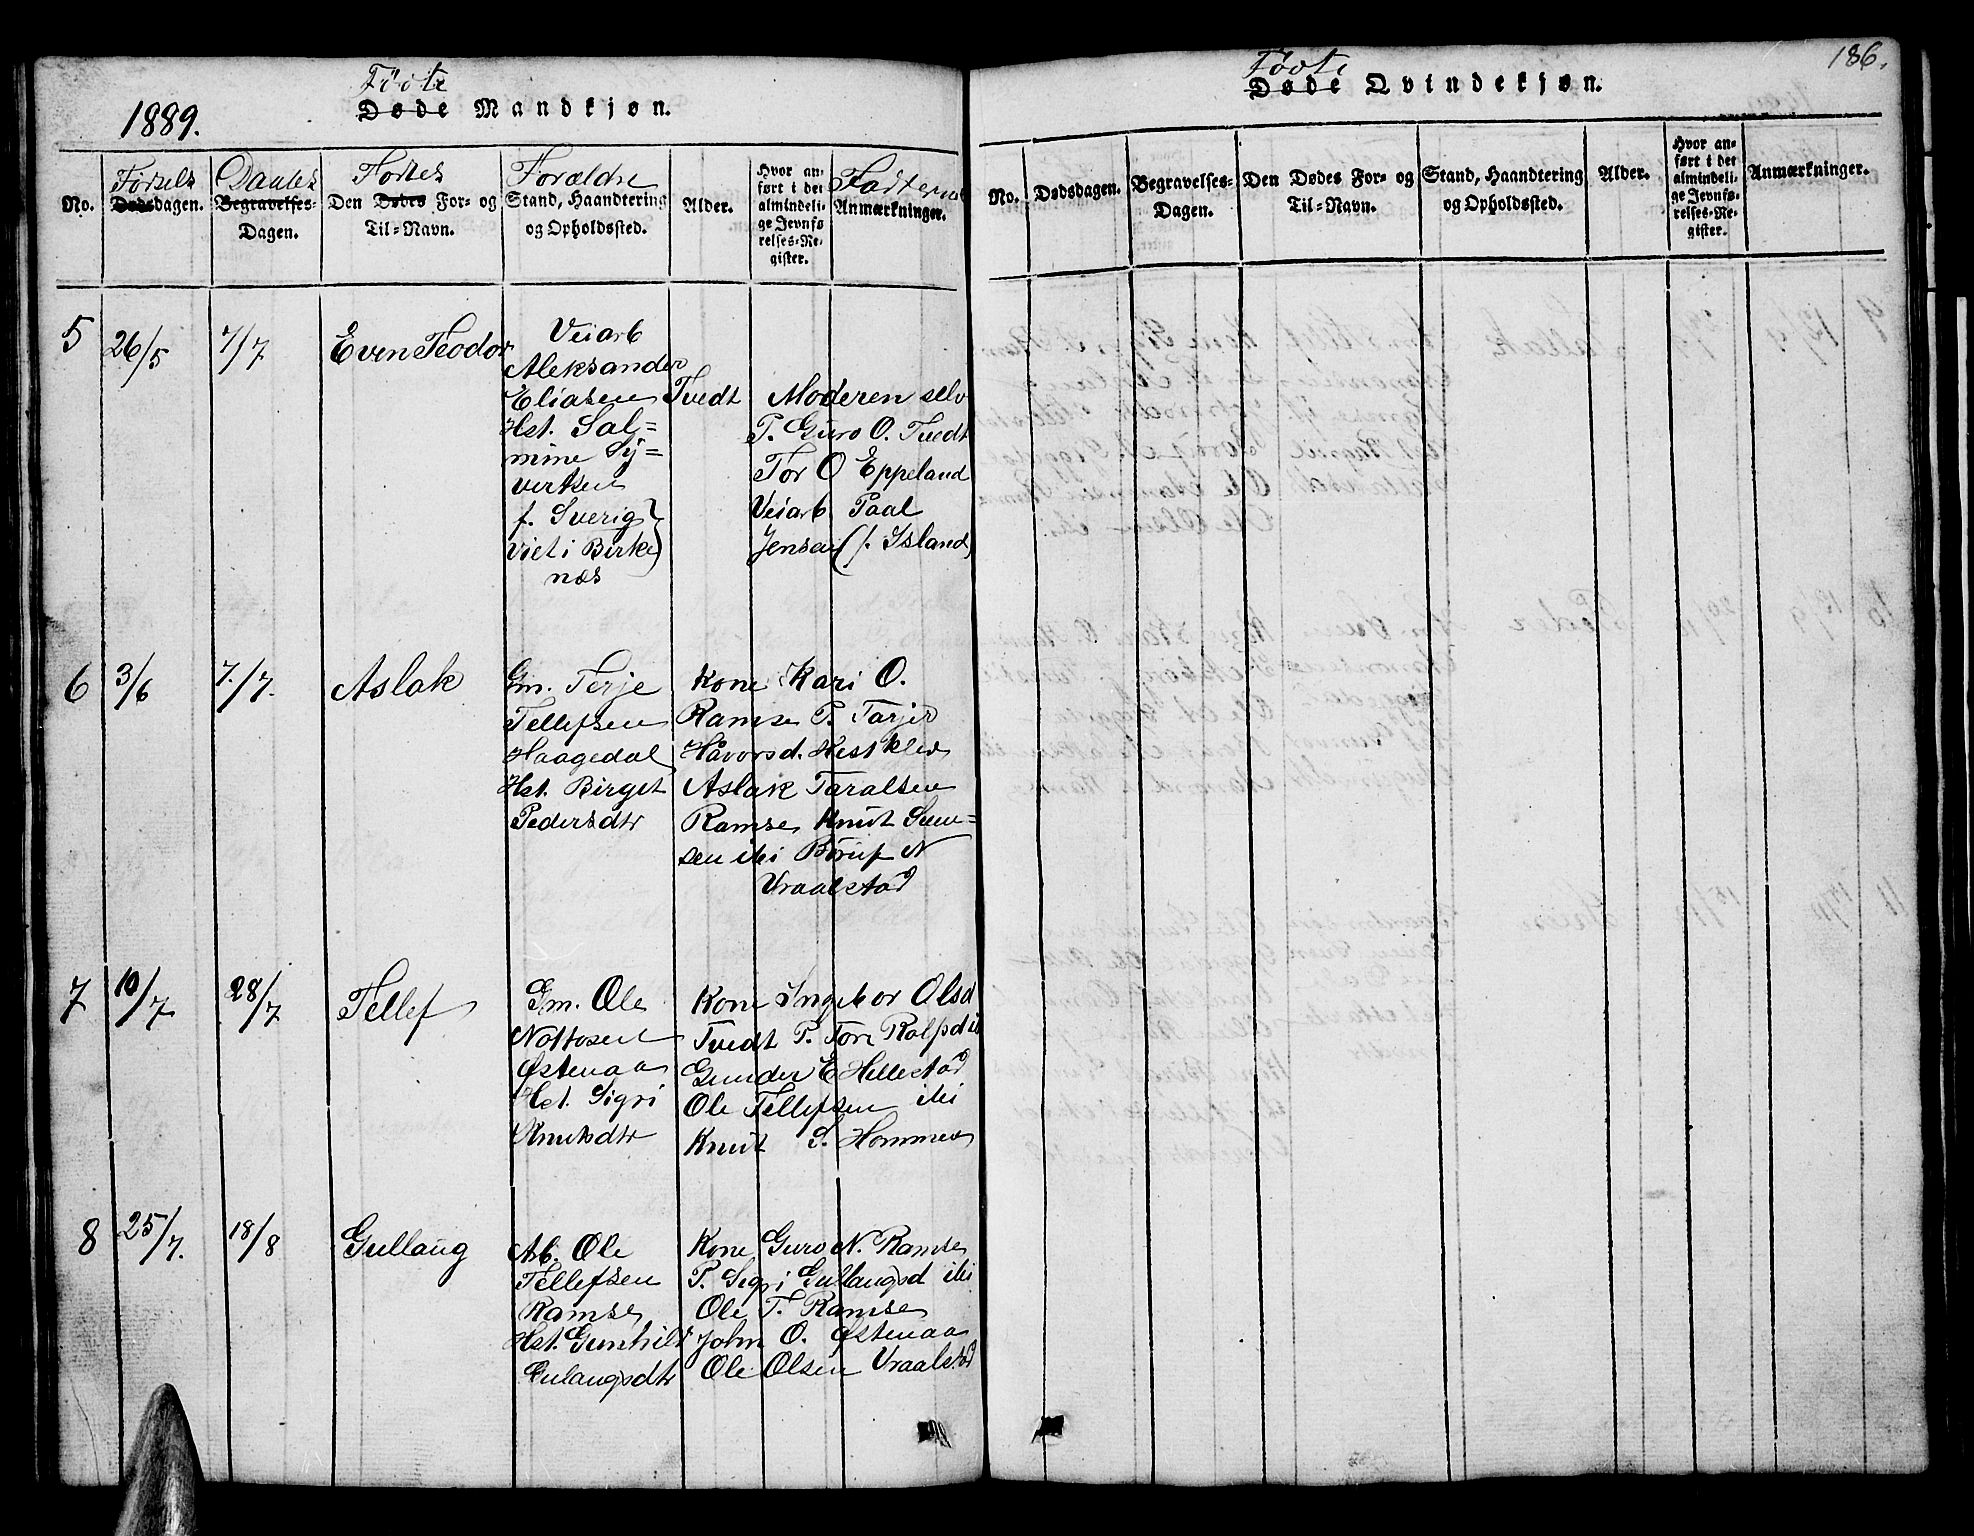 1889.
Fødte
Døde Mandkjøn.
No.
Fødsels
Dødsdagen.
Daabs
Begravelses-
Dagen.
Fødtes
Den Dødes For- og
Til-Navn.
Forældre
Stand, Haandtering
og Opholdssted.
Alder.
Hvor an-
ført i det
almindeli-
ge Jevnfø
relses-Re-
gister.
Fadderne
Anmærkninger.
5
26/5
7/7
Even Teodor
Veiarb
Aleksander
Eliasen Tvedt
Hst. Sal=
mine Sy=
vertsen
f. Sverig
viet i Birke
næs
Moderen selv
P. Guro O. Tvedt
Tor O Eppeland
Veiarb Paal
Jensen (f. Island)
6
3/6
7./7.
Aslak
Gm. Terje
Tellefsen
Haagedal
Hst. Birget
Pedersdtr
Kone Kari O.
Ramse P. Tarjer
Håvorsd. Hestklev
Aslak Taralsen
Ramse Knut Sven=
sen ibi Børuf N
Vraalstad
7
10/7
28/7
Tellef
Gm. Ole
Nottosen
Østenaa
Hst. Sigri
Knutsdtr
Kone Ingebor Olsd
Tvedt P. Tore Rolfsd ib
Gunder E Hellestad
Ole Tellefsen ibi
Knut S. Hommen
8
25/7.
18/8
Gullaug
Arb. Ole
Tellefsen
Ramse
Hst. Gunhild
Gulaugsdtr
Kone Guro N. Ramse
P. Sigri Gullaugsd ibi
Ole T. Ramse
John O. Østenaa
Ole Olsen Vraalstad
186.
Fødte
Døde Qvindekjøn.
No.
Dødsdagen.
Begravelses-
Dagen.
Den Dødes For- og
Til-Navn.
Stand, Haandtering
og Opholdssted.
Alder.
Hvor an-
ført i det
almindeli-
ge Jevnfø-
relses-Re-
gister.
Anmærkninger.